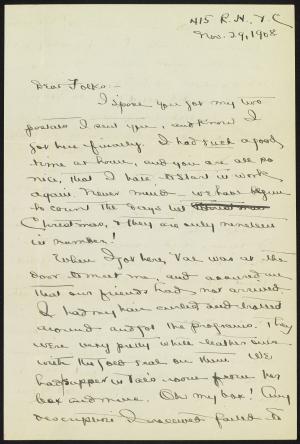 415 R. H., T. C.
Nov. 29, 1908
Dear Folks:-
I spose you got my two
postals I sent you, and know I
got here finally. I had such a good
time at home, and you are all so
nice, that I hate to start in work
again. Never mind - we have begun
to count the days but
Christmas, & they are only nineteen
in number!
When I got here, Vae was at the
door to meet me, and assured me
that our friends had not arrived
I had my hair curled and
around and got the programs. They
were very pretty white leather ones
with the gold seal on them. We
had supper in Vae's room from her
box and mine. Oh my box! Any
description I received failed to